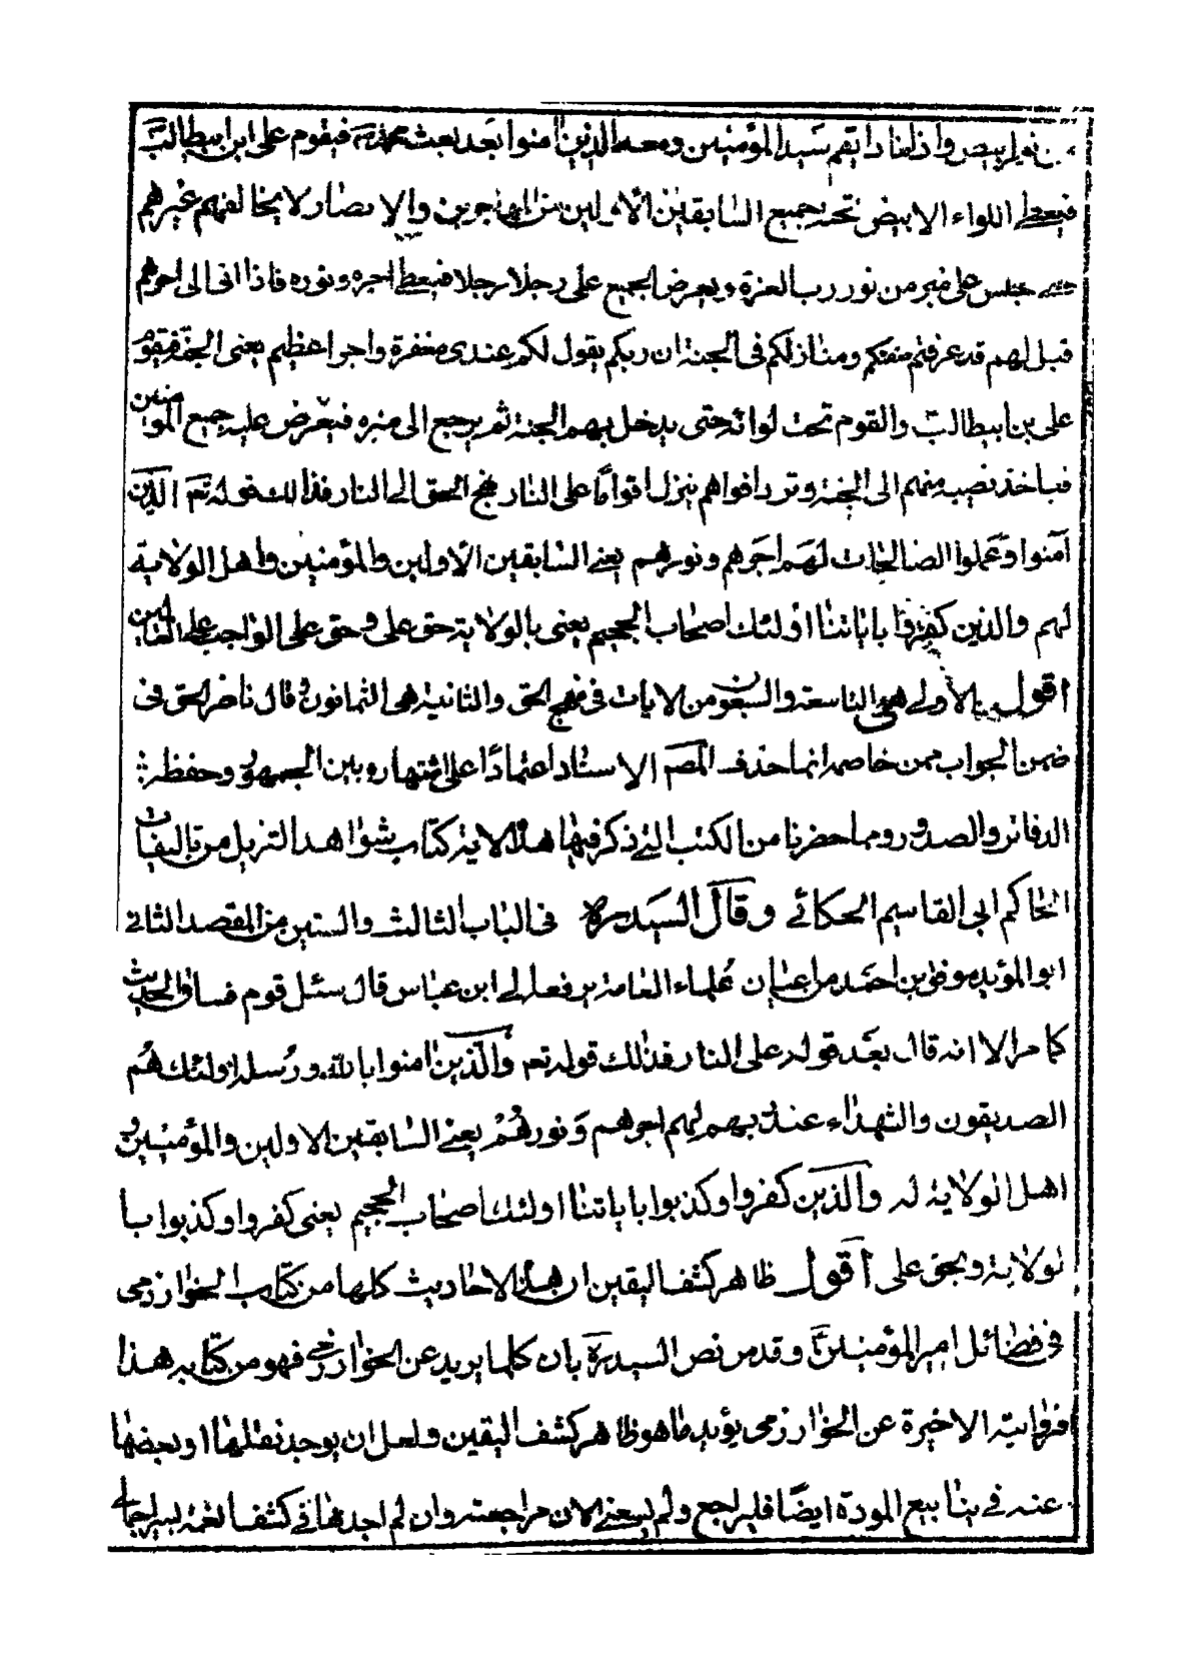 من نور ابيض واذا مناد ليقم سيد المؤمنين ومعه الذين امنوا بعد بعث محمد ص فيقوم على ابن ابيطالب
فيعطى اللواء الابيض تحته جميع السابقين الاولين من المهاجرين والانصار لا يخالفهم غيرهم
حتى يجلس على منبر من نور رب العزة ويعرض الجميع على رجلا رجلا فيعطى اجره ونوره فاذا اتى الى اخرهم
قيل لهم قد عرفتم صفتكم ومنازلكم فى الجنة ان ربكم يقول لكم عندى مغفرة واجرا عظيم يعنى الجنة فيقوم
على بن ابيطالب والقوم تحت لوائه حتى يدخل بهم الجنة ثم يرجع الى منبره فيعرض عليه جميع المؤمنين
فياخذ نصيبه منهم الى الجنة وترد اقواهم ينزل اقواما على النار نهج الحق الى النار فذالك قوله تعم الذين
آمنوا وعملوا الصالحات لهم اجرهم ونورهم يعنى السابقين الاولين والمؤمنين واهل الولاية
لهم والذين كفروا باياتنا اولئك اصحاب الجحيم يعنى بالولاية حق على وحق على الواجب على العالمين
اقول الاولى هى التاسعة والسبعون من الايات فى نهج الحق والثانية هى الثمانون وقال ناصر الحق فى
ضمن الجواب ممن خاصمه انما حذف المصم الاسناد اعتمادا على اشتهاره بين الجمهور وحفظه
الدفاتر والصدور ومما حضرنا من الكتب التى ذكر فيها هذه الاية كتاب شواهد التنزيل من تاليفات
الحاكم ابى القاسم الحكانى وقال السيد ره فى الباب الثالث والستين من المقصد الثانى
ابو المؤيد موفق بن احمد من اعيان علماء العامة يرفعه الى ابن عباس قال سئل قوم فساق الحديث
كما مر الا انه قال بعد قوله على النار فذلك قوله تعم والذين امنوا بالله ورسله اولئك هم
الصديقون والشهداء عند ربهم لهم اجرهم ونورهم يعنى السابقين الاولين والمؤمنين و
اهل الولاية له والذين كفروا وكذبوا باياتنا اولئك اصحاب الجحيم يعنى كفروا وكذبوا با
لولاية وبحق على اقول ظاهر كشف اليقين ان هذه الاحاديث كلها من كتاب الخوارزمى
فى فضائل امير المؤمنين ع وقد مر نص السيد ره بان كلما يريد عن الخوارزمى فهو من كتابه هذا
فروايته الاخيرة عن الخوارزمى يؤيد ما هو ظاهر كشف اليقين ولعل ان يوجد نقلها او بعضها
عنه فى ينابيع المودة ايضا فليراجع ولم يسعنى الان مراجعته وان لم اجدها فى كشف الغمة لسيراجمالى